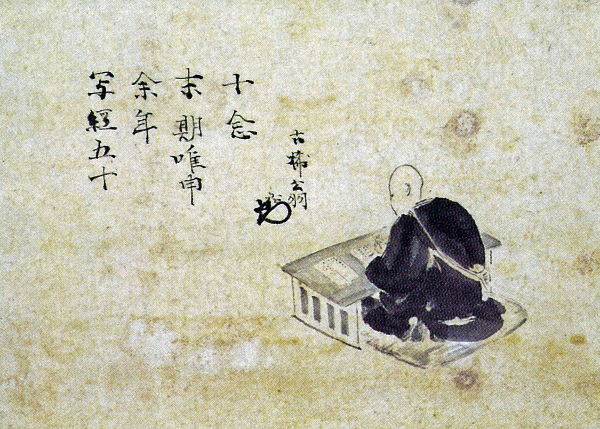 写經五十
余年
末期唯申
十念
古稀翁